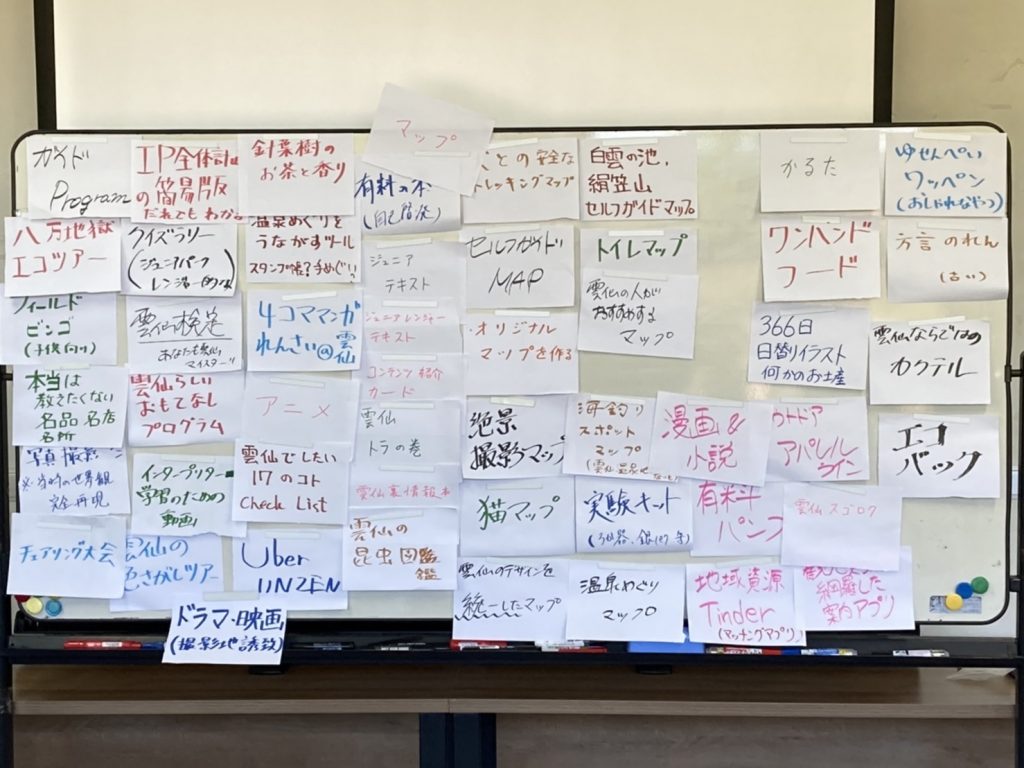 ガイド
Program
IP全体計画
の簡易版
だれでもわかる
針葉樹の
お茶と香り
マップ
有料の本
との安全な
トレッキングマップ
白雲の池、
絹笠山
セルフガイドマップ
かるた
ゆせんぺい
ワッペン
(おしゃれなやつ)
八万地獄
エコツアー
クイズラリー
(ジュニアパーク
レンジャー的な)
温泉めぐりを
うながすツール
スタンプ帳?手ぬぐい?
ジュニア
テキスト
セルフガイド
MAP
トイレマップ
ワンハンド
フード
方言のれん
(古い)
フィールド
ビンゴ
(子供向け)
雲仙検定
あなたも雲仙
マイスター!!
4コママンガ
れんさい@雲仙
ジュニアレンジャー
テキスト
コンテンツ紹介
カード
・オリジナル
マップを作る
雲仙の人が
おすすめする
マップ
366日
日替りイラスト
何かのお土産
雲仙ならではの
カクテル
本当は
教えたくない
名品 名店
名所
雲仙らしい
おもてなし
プログラム
アニメ
雲仙
トラの巻
絶景
撮影マップ
海釣り
スポット
マップ
漫画&
小説
アパレル
ライン
エコ
バック
写真撮影
完全再現
インタープリター
学習のための
動画
雲仙でしたい
17のコト
Check List
雲仙裏情報本
猫マップ
実験キット
有料
パンフ
雲仙スゴロク
チェアリング大会
雲仙の
色さがしツアー
Uber
UNZEN
雲仙の
昆虫図鑑
雲仙のデザインを
統一したマップ
温泉めぐり
マップ
地域資源
Tinder
(マッチングアプリ)
網羅した
案内アプリ
ドラマ・映画
(撮影地誘致)